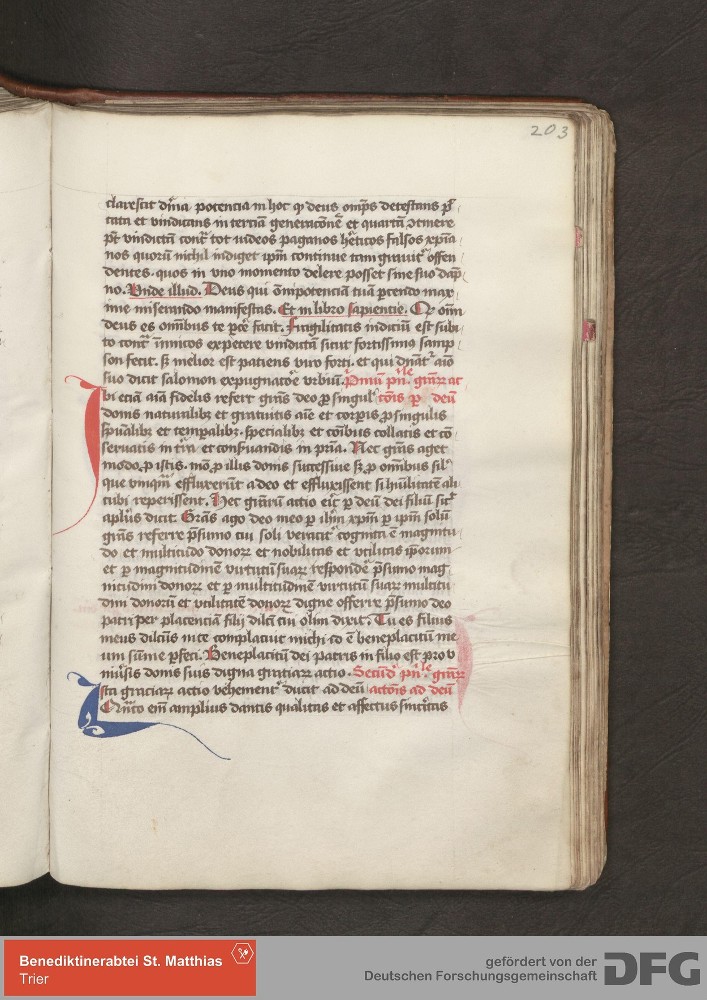 203
clarescit diuina potencia in hoc quod deus omnipotens detestans
cata et vindicans in terciam generacionem et quartam
vindictam tot iudeos paganos hereticos falsos xpiia
nos quorum nichil indiget ipsum continue tam grauiter offen
dentes. quos in vno momento delere posset sine suo dap
no. Vnde illud. Deus qui omnipotenciam tuam parcendo max
ime miserando manifestas. Et in libro sapiencie. om
deus es omnibus te facit. Fragilitatis indicium est subi
to contra inimicos expetere vindictam sicut fortissimus samp
son fecit. sed melior est patiens viro forti. et qui animo
suo dicit salomon expugnatore vrbium. Primum ac
bi eciam anima fidelis referre gracias deo pro singul
donis naturalibus et gratuitis anime et corporis pro singulis
spiritualibus et temporalibus. specialibus et collatis et con
seruatis in via et conseruandis in patria. Nec gracias aget
modo pro istis. modo pro illis donis successiue sed pro omnibus
que vniquam effluxerunt a deo et effluxissent si humilitatem ali
cubi reperissent. Hec graciarum actio per deum dei filium sicut
apostolus dicit. Gracias ago deo meo per ihesum xpm per ipsum solum
gracias referre presumo cui soli veraciter cognita est magnitu
do et multitudo donorum et nobilitas et vtilitas ipsorum
et per magnitudinem virtutum suarum respondere presumo mag
nitudini donorum et per multitudinem virtutum suarum multitu
dini donorum et vtilitatem donorum digne offerre presumo deo
patri per placenciam filii dilecti cui olim dixit. Tu es filius
meus dilectus in te complacuit michi id est beneplacitum me
um summe perfeci. Beneplacitum dei patris in filio est pro v
niuersis donis suis digna graciarum actio. Secundum
sta graciarum actio vehementer ducit ad deum actionis ad deum
enim amplius dantis qualitas et affectus sinceritas
Benediktinerabtei St. Matthias
Trier
gefördert von der
Deutschen Forschungsgemeinschaft
DFG